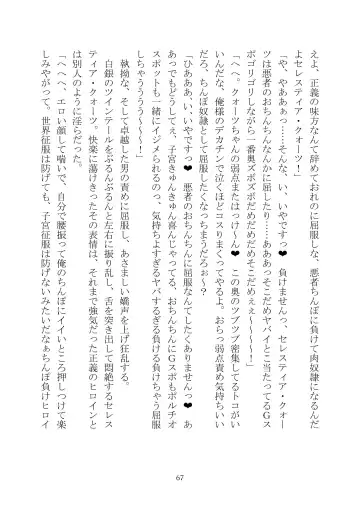 えよ、正義の味方なんて辞めておれのに屈服しな、悪者ちんぽに負けて肉奴隷になるんだ
よセレスティア・クォーツ！」
「や、やああぁっ……そんな、い、いやですっ♥ 負けませんっ、セレスティア・クォー
ツは悪者のおちんちんなんかに屈したり……あああっそこだめヤバイとこ当たってるGス
ポゴリゴリしながら一番奥ズボズボだめだめだめそこだめぇぇ～～～～！」
「へへ。クォーツちゃんの弱点またはっけ～ん♥ この奥のツブツブ密集してるトコがい
いんだな、俺様のデカチンで泣くほどコスりまくってやるよ。おらっ弱点責め気持ちいい
だろ、ちんぽ奴隷として屈服したくなっちまうだろぉ～？」
「ひああああ、い、いいですっ♥ 悪者のおちんちんに屈服なんてしたくありませんっ♥ あ
あっでもどうしてぇ、子宮きゅんきゅん喜んじゃってる、おちんちんにGスポもポルチオ
スポットも一緒にイジメられるのっ、気持ちよすぎるヤバすぎる負ける負けちゃう屈服
しちゃうううう～～～！」
執拗な、そして卓越した男の責めに屈服し、あさましい嬌声を上げ狂乱する。
白銀のツインテールをぶるんぶるんと左右に振り乱し、舌を突き出して悶絶するセレス
ティア・クォーツ。快楽に蕩けきったその表情は、それまで強気だった正義のヒロインと
は別人のように淫らだった。
「へへへ、エロい顔して喘いで、自分で腰振って俺のちんぽにイイいところ押しつけて楽
しみやがって。世界征服は防げても、子宮征服は防げないみたいだなぁちんぽ負けヒロイ
67